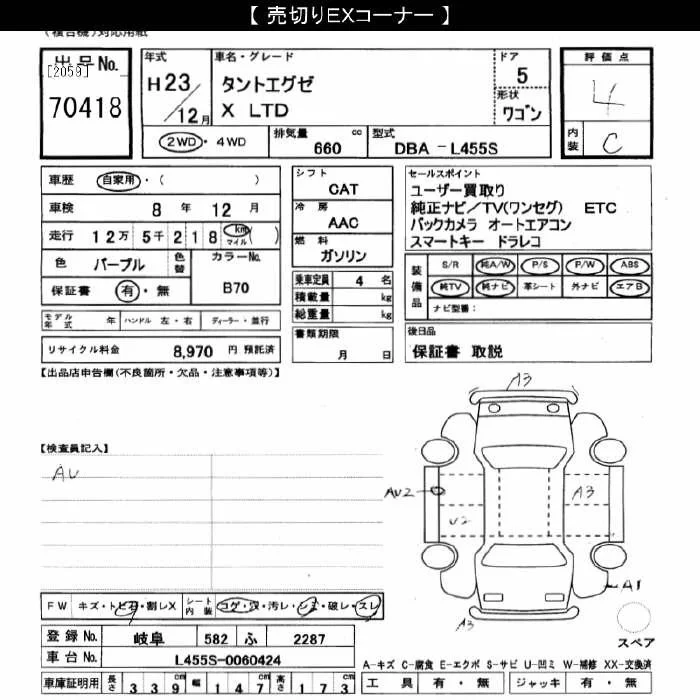 【 売切りEXコーナー 】
(複合機)対応用紙
出品No.
[2059]
70418
年式
H23/12月
車名・グレード
タントエグゼ
X LTD
ドア
5
形状
ワゴン
評価点
4
内装
C
2WD・4WD
排気量
660 cc
型式
DBA －L455S
車歴 自家用・( )
車検 8 年 12 月
走行 12万 5千 2 1 8 km マイル ( )
色 パープル
色替
カラーNo.
B70
保証書 有・無
モデル年式 年 ハンドル 左・右 ディーラー・並行
リサイクル料金 8,970 円 預託済
シフト
CAT
冷房
AAC
燃料
ガソリン
乗車定員 4 名
積載量 kg
総重量 kg
書類期限
月 日
セールスポイント
ユーザー買取り
純正ナビ/TV(ワンセグ) ETC
バックカメラ オートエアコン
スマートキー ドラレコ
装備品
S/R 純A/W P/S P/W ABS
純TV 純ナビ 革シート 外ナビ エアB
ナビ型番:
後日品
保証書 取説
【出品店申告欄(不良箇所・欠品・注意事項等)】
【検査員記入】
AU
A3
AU2
U2
A3
A1
A3
スペア
FW キズ・トビ石・割レX
シート内装 コゲ・穴・汚レ・シミ・破レ・スレ
登録No. 岐阜 582 ふ 2287
車台No. L455S-0060424
車庫証明用 長さ 339cm 幅 147cm 高さ 173cm
A-キズ C-腐食 E-エクボ S-サビ U-凹ミ W-補修 XX-交換済
工具 有・無 ジャッキ 有・無